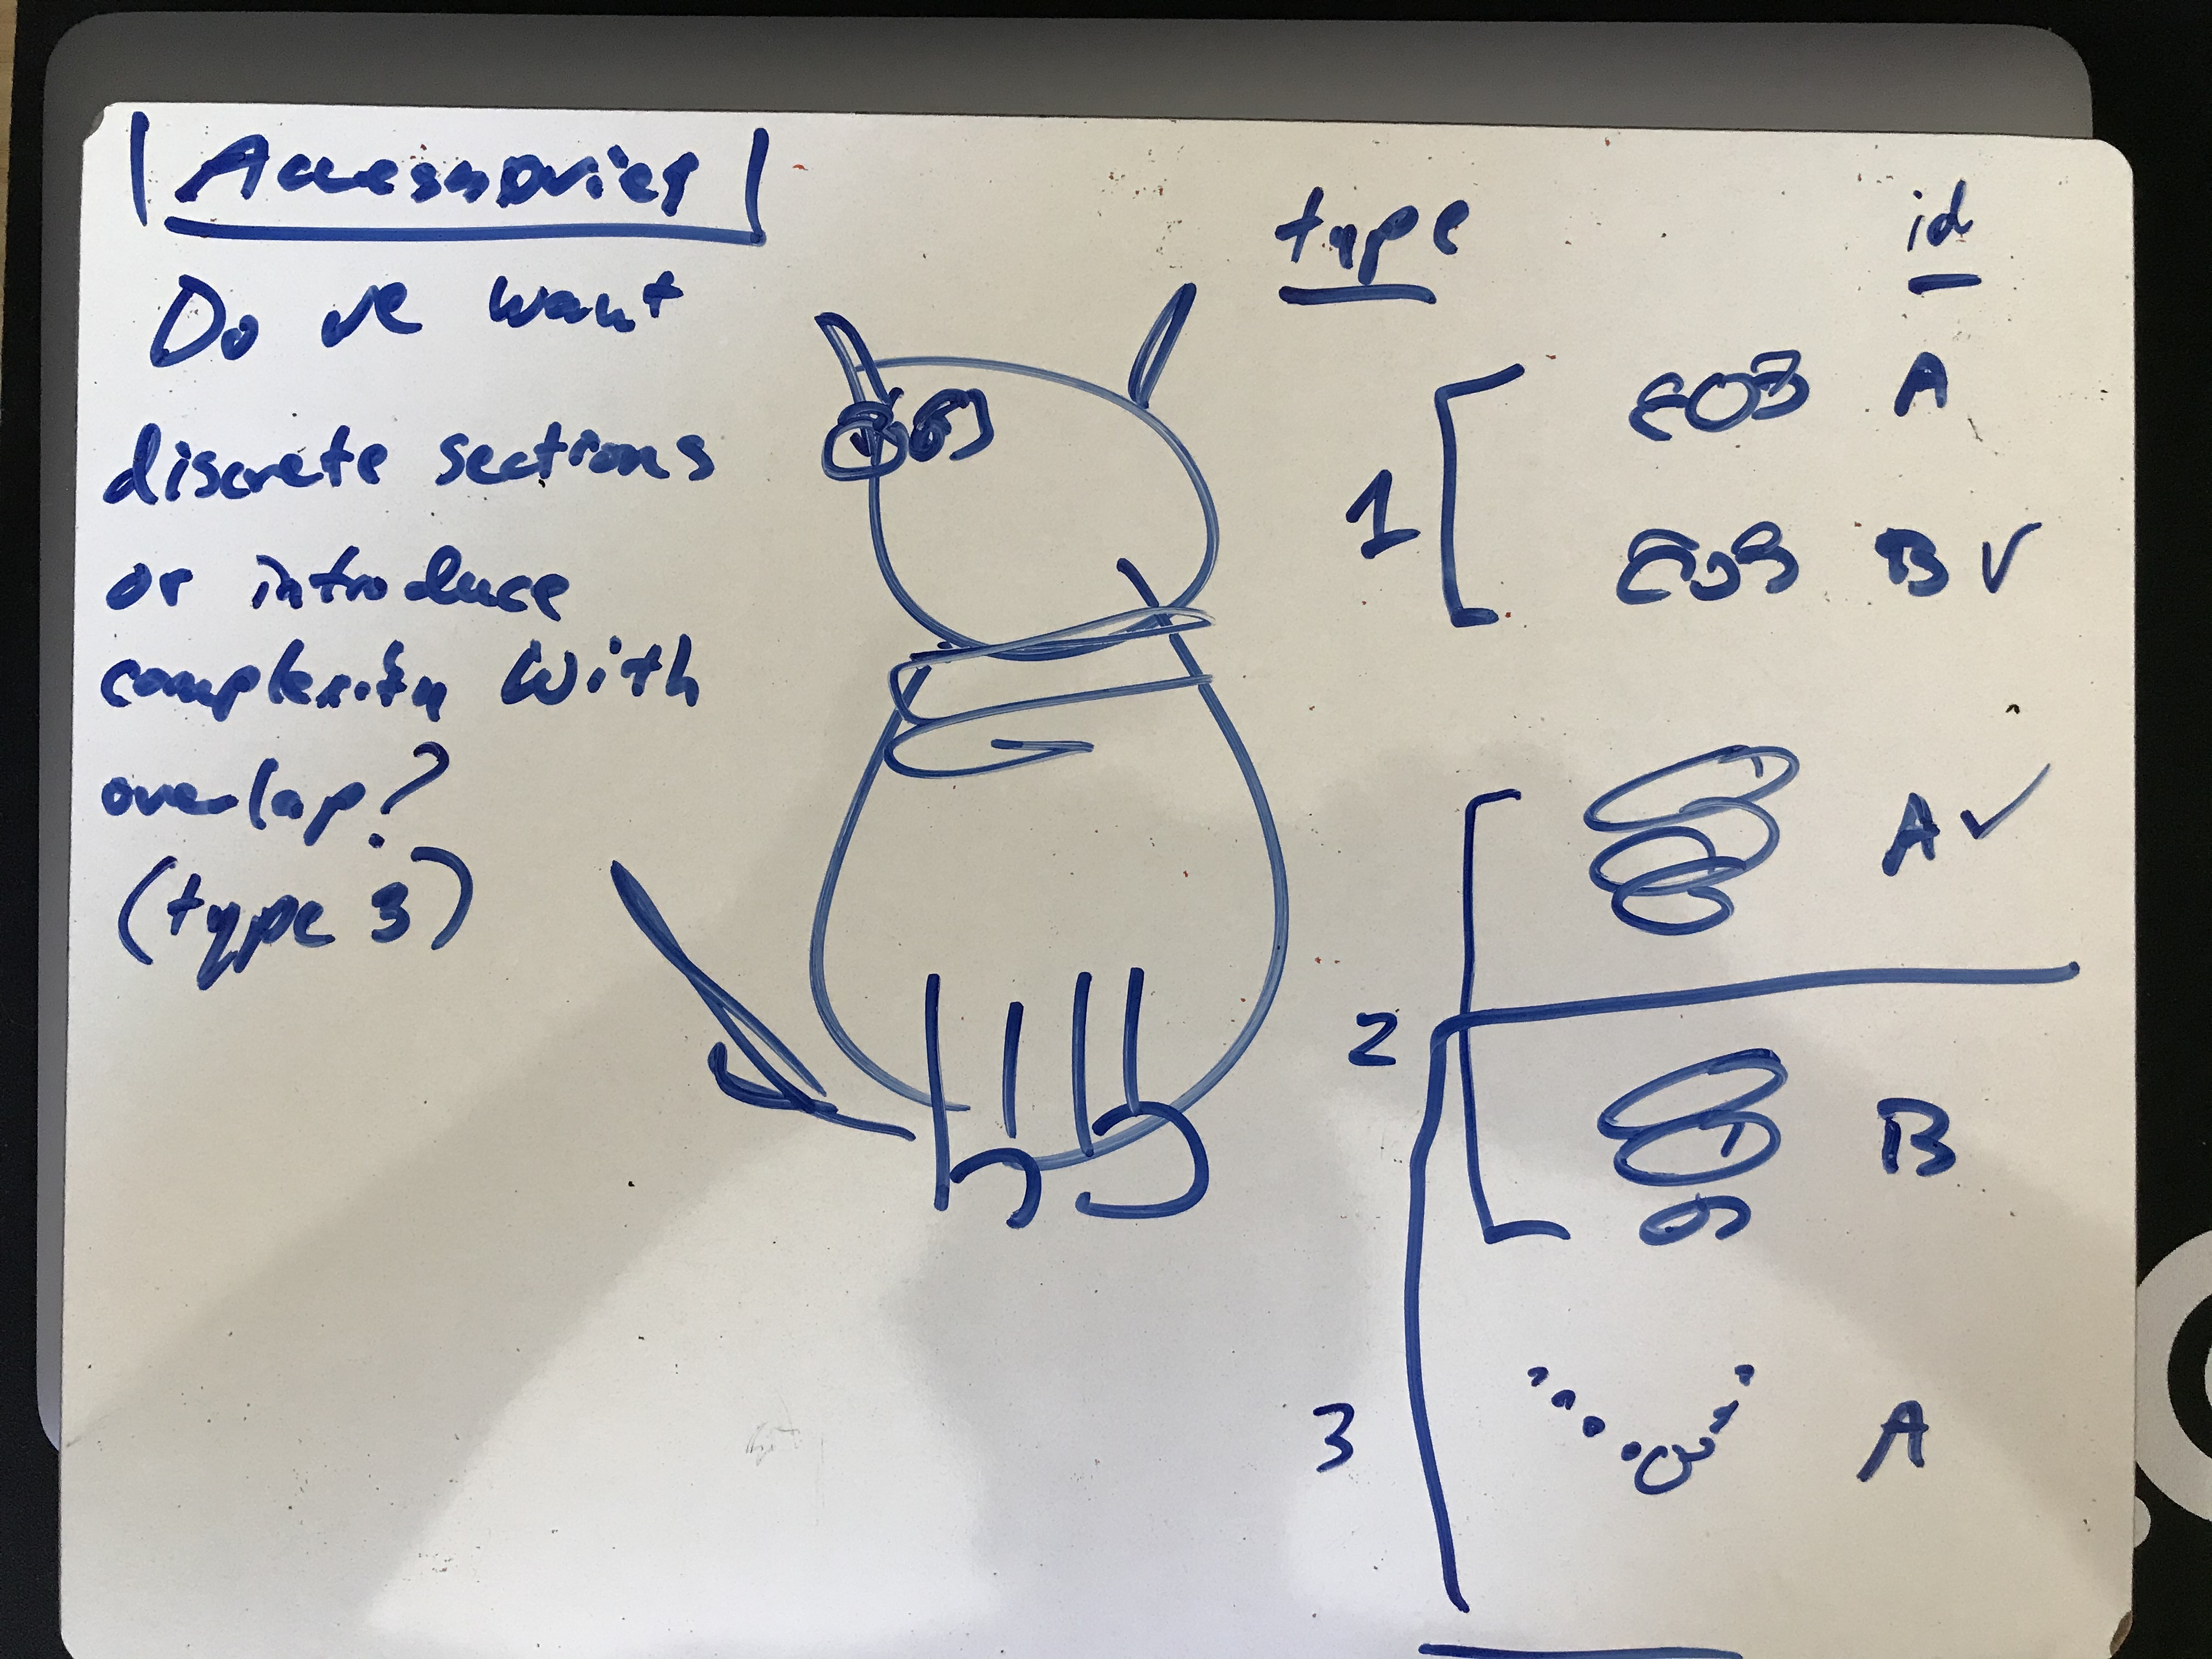 Accessories
Do we want
discrete sections
or introduce
complexity with
overlap?
(type 3)
type id
A
1
B ✓
A ✓
2
B
3 A